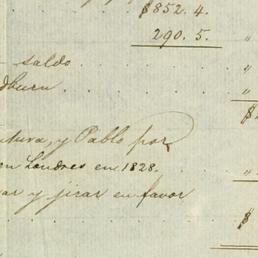 $852. 4.
290. 5. "
saldo "
"
y Pablo por
en Londres en 1828.
y jirar en favor
$